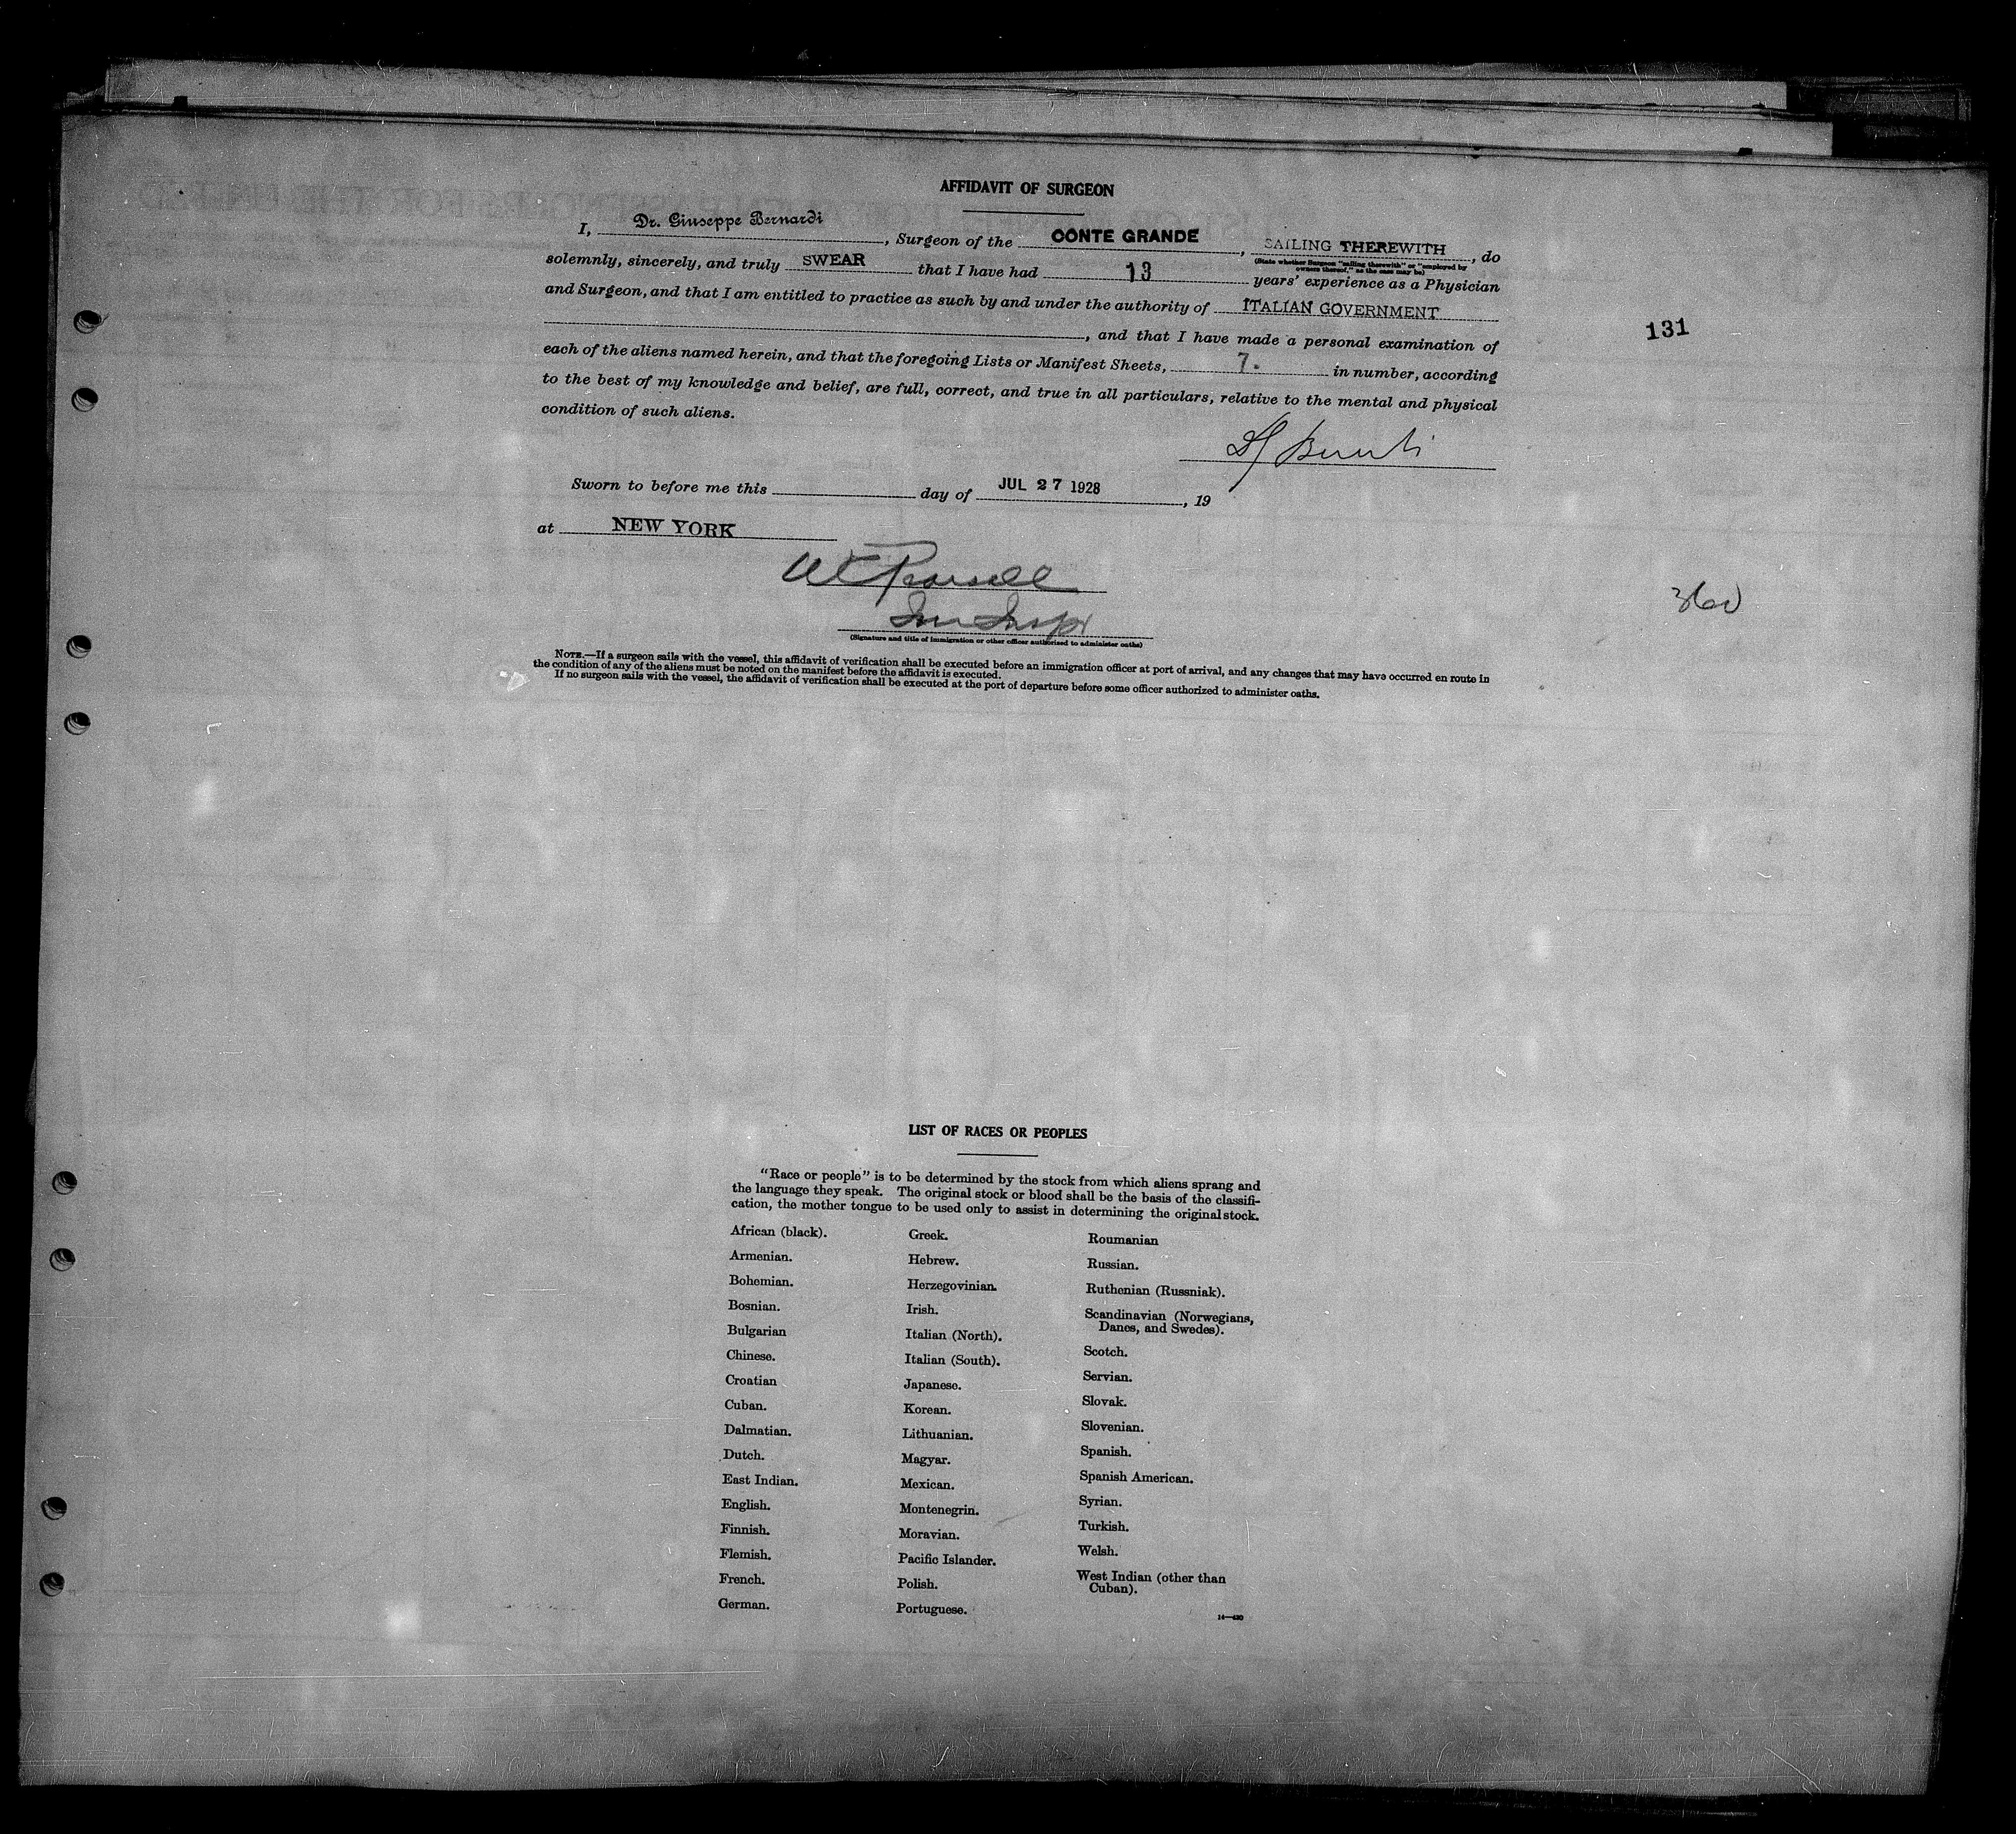 AFFIDAVIT OF SURGEON
I, Dr. Giuseppe Bernardi, Surgeon of the CONTE GRANDE, SAILING THEREWITH, do
(State whether Surgeon "sailing therewith" or "employed by owners thereof," as the case may be)
solemnly, sincerely, and truly SWEAR that I have had 13 years' experience as a Physician
and Surgeon, and that I am entitled to practice as such by and under the authority of ITALIAN GOVERNMENT
, and that I have made a personal examination of
131
each of the aliens named herein, and that the foregoing Lists or Manifest Sheets, 7. in number, according
to the best of my knowledge and belief, are full, correct, and true in all particulars, relative to the mental and physical
condition of such aliens.
Sworn to before me this day of JUL 27 1928, 19
at NEW YORK
(Signature and title of immigration or other officer authorized to administer oaths)
NOTE.—If a surgeon sails with the vessel, this affidavit of verification shall be executed before an immigration officer at port of arrival, and any changes that may have occurred en route in
the condition of any of the aliens must be noted on the manifest before the affidavit is executed.
If no surgeon sails with the vessel, the affidavit of verification shall be executed at the port of departure before some officer authorized to administer oaths.
LIST OF RACES OR PEOPLES
"Race or people" is to be determined by the stock from which aliens sprang and
the language they speak. The original stock or blood shall be the basis of the classifi-
cation, the mother tongue to be used only to assist in determining the original stock.
African (black).
Armenian.
Bohemian.
Bosnian.
Bulgarian
Chinese.
Croatian
Cuban.
Dalmatian.
Dutch.
East Indian.
English.
Finnish.
Flemish.
French.
German.
Greek.
Hebrew.
Herzegovinian.
Irish.
Italian (North).
Italian (South).
Japanese.
Korean.
Lithuanian.
Magyar.
Mexican.
Montenegrin.
Moravian.
Pacific Islander.
Polish.
Portuguese.
Roumanian
Russian.
Ruthenian (Russniak).
Scandinavian (Norwegians,
Danes, and Swedes).
Scotch.
Servian.
Slovak.
Slovenian.
Spanish.
Spanish American.
Syrian.
Turkish.
Welsh.
West Indian (other than
Cuban).